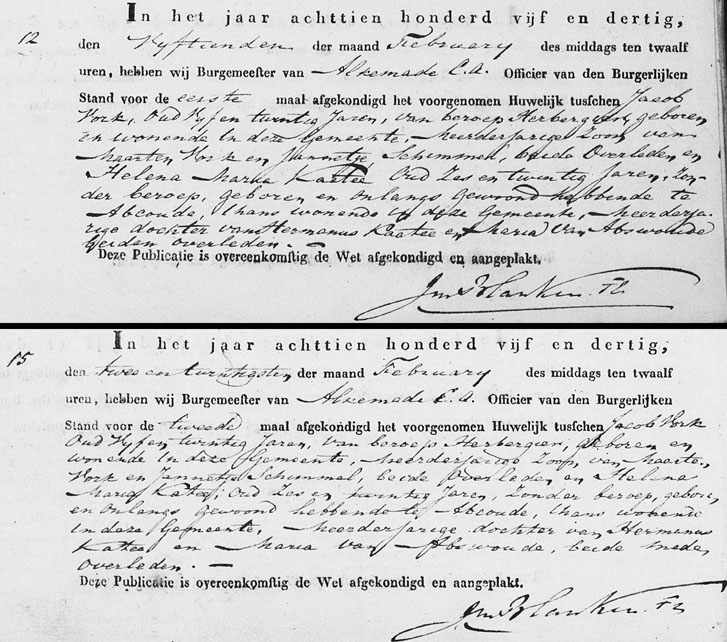 In het jaar achttien honderd vijf en dertig,
12
den Vyftienden der maand February des middags ten twaalf
uren, hebben wij Burgemeester van Alkemade C.A. Officier van den Burgerlijken
Stand voor de eerste maal afgekondigd het voorgenomen Huwelijk tusschen Jacob
Vork, Oud Vyf en twintig Jaren, van beroep Herbergier, geboren
en wonende in deze Gemeente, Meerderjarige Zoon van
Maarten Vork en Jannetje Schimmel, beide Overleden en
Helena Maria Kattee Oud Zes en twintig Jaren, Zon-
der beroep, geboren en onlangs gewoond hebbende te
Abcoude, thans wonende in deze Gemeente, Meerderja-
rige dochter van Hermanus Kaatee en Maria Van Abswoude
beiden overleden. —
Deze Publicatie is overeenkomstig de Wet afgekondigd en aangeplakt.
In het jaar achttien honderd vijf en dertig,
15
den twee en twintigsten der maand February des middags ten twaalf
uren, hebben wij Burgemeester van Alkemade C.A. Officier van den Burgerlijken
Stand voor de tweede maal afgekondigd het voorgenomen Huwelijk tusschen Jacob Vork
Oud Vyf en twintig Jaren, van beroep Herbergier, geboren en
wonende in deze Gemeente, Meerderjarige Zoon van Maarten
Vork en Jannetje Schimmel, beide Overleden en Helena
Maria Katee, Oud Zes en twintig Jaren, Zonder beroep, geboren
en onlangs gewoond hebbende te Abcoude, thans wonende
in deze Gemeente, Meerderjarige dochter van Hermanus
Katee en Maria van Abswoude, beide mede
overleden. —
Deze Publicatie is overeenkomstig de Wet afgekondigd en aangeplakt.